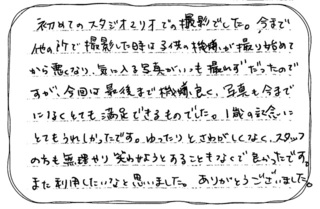 初めてのスタジオマリオでの撮影でした。今まで
他の所で撮影した時は子供の機嫌が撮り始めて
から悪くなり、気に入る写真がいつも撮れずだったので
すが、今回は最後まで機嫌良く、写真も今まで
になくとても満足できるものでした。1歳の記念に
とてもうれしかったです。ゆったりとさわがしくなく、スタッフ
の方も無理やり笑わせようとすることもなくて良かったです。
また利用したいなと思いました。ありがとうございました。